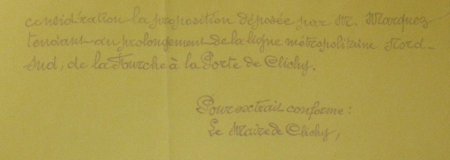 considération la proposition déposée par M. Marquez
tendant au prolongement de la ligne métropolitaine Nord-
Sud, de la Fourche à la Porte de Clichy.
Pour extrait conforme:
Le Maire de Clichy,